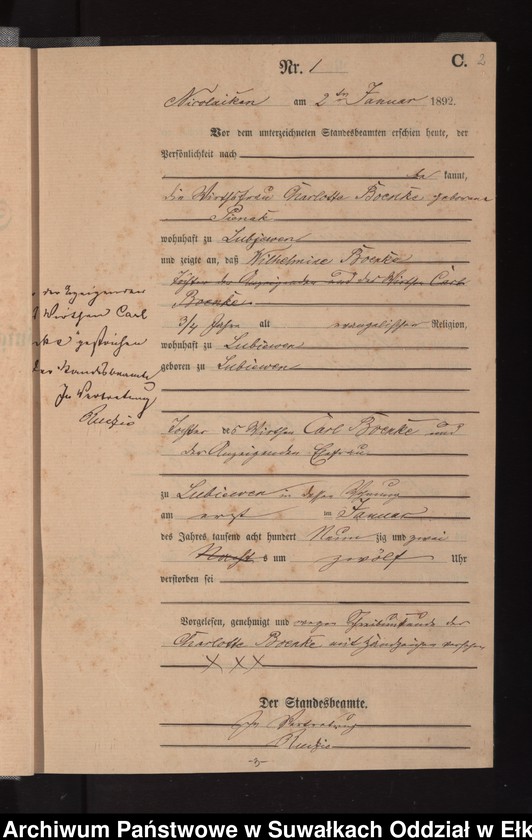 C. 2
Nr. 1
Nicolaiken am 2ten Januar 1892.
Vor dem unterzeichneten Standesbeamten erschien heute, der
Persönlichkeit nach
be kannt,
die Wirthsfrau Charlotte Boenke geborene
wohnhaft zu Lubjewen
und zeigte an, daß Wilhelmine Boenke
Tochter der Anzeigenden und des Wirthen Carl
Boenke
3/4 Jahre alt evangelischer Religion,
wohnhaft zu Lubiewen
geboren zu Lubiewen
Tochter des Wirthen Carl Boenke und
der Anzeigenden Ehefrau
zu Lubiewen in dessen Wohnung
am ersten Januar
des Jahres tausend acht hundert Neun zig und zwei
Nachts um zwölf Uhr
verstorben sei
Vorgelesen, genehmigt und wegen Schreibunkunde der
Charlotte Boenke mit Handzeichen versehen
X X X
Der Standesbeamte.
In Vertretung
der Anzeigenden
Wirthen Carl
gestrichen
Der Standesbeamte
In Vertretung
Archiwum Państwowe w Suwałkach Oddział w Ełk